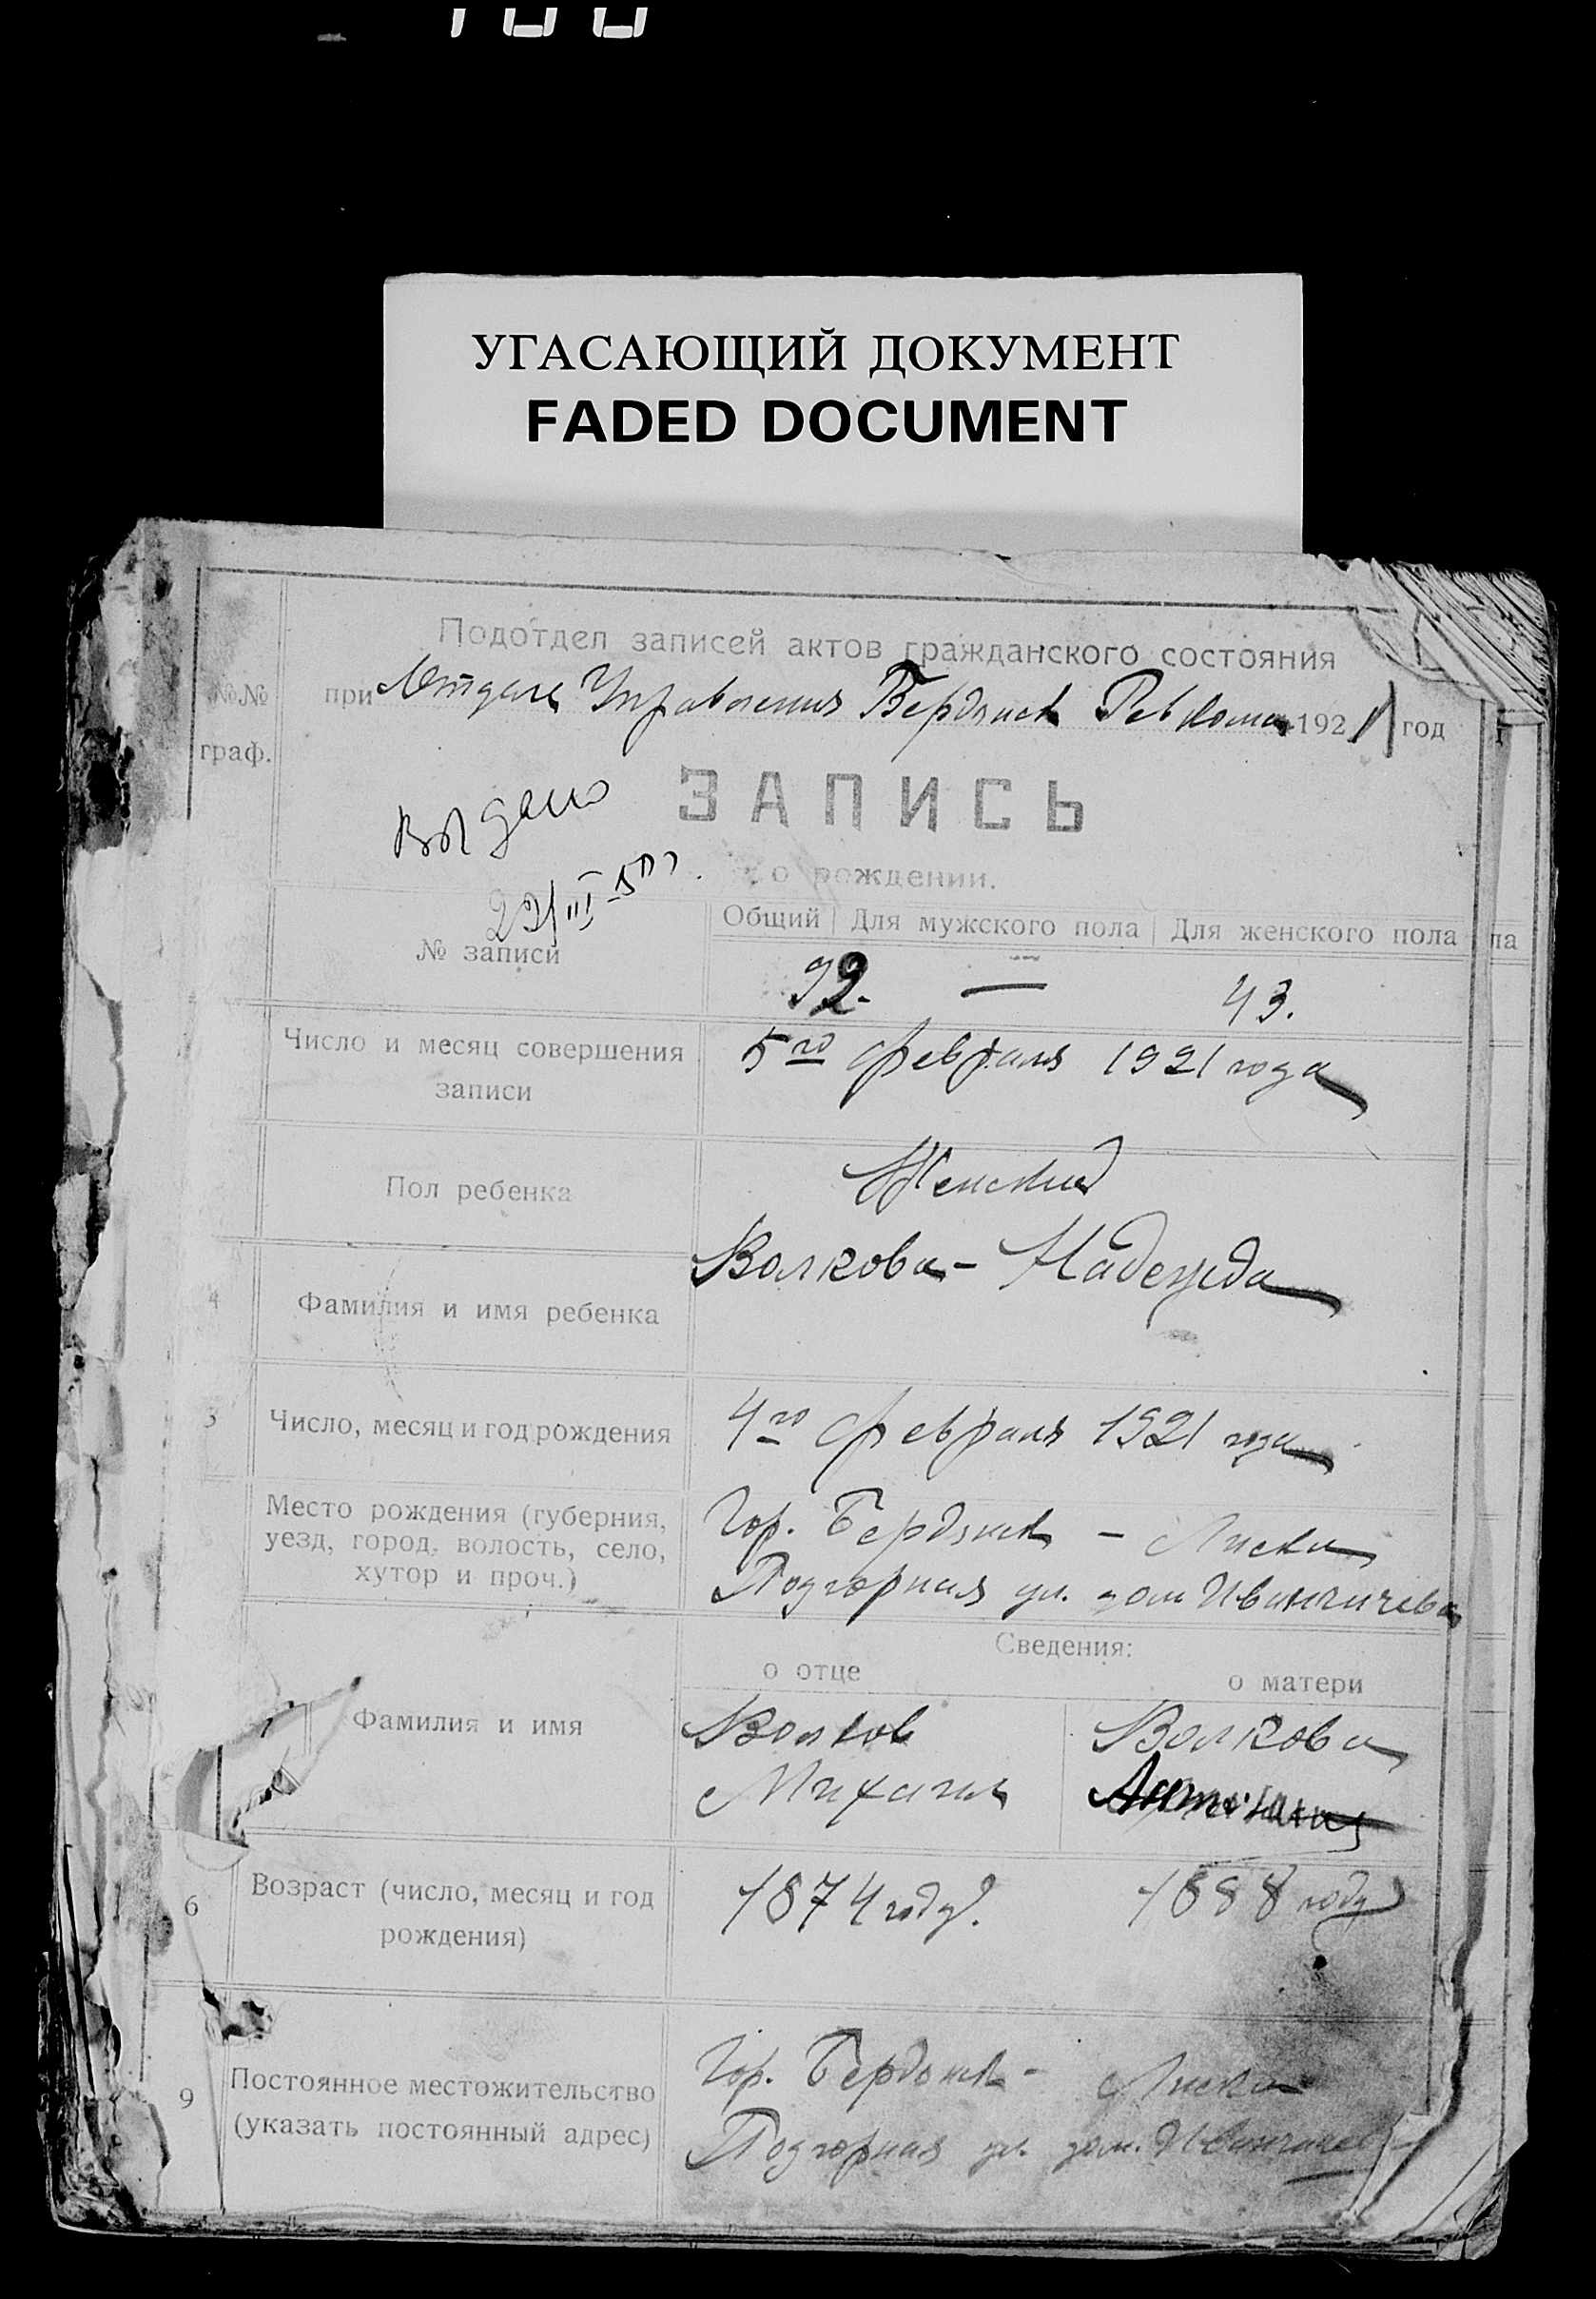 УГАСАЮЩИЙ ДОКУМЕНТ
FADED DOCUMENT
Подотдел записей актов гражданского состояния
№№
граф.
при Отделе Управления Бердянск Ревкома 1921 год
ЗАПИСЬ
Выдано
о рождении.
№ записи
Общий Для мужского пола Для женского пола
92. — 43.
Число и месяц совершения
записи
5го февраля 1921 года
Пол ребенка
Женский
4
Фамилия и имя ребенка
Волкова - Надежда
Число, месяц и год рождения
4го февраля 1921 года
Место рождения (губерния,
уезд, город, волость, село,
хутор и проч.)
Гор. Бердянск - Лиски
Подгорная ул. дом
Сведения:
о отце о матери
Фамилия и имя
Волков Волкова
Михаил
6
Возраст (число, месяц и год
рождения)
1874 году. 1888 году
9
Постоянное местожительство
(указать постоянный адрес)
Гор. Бердянск - Лиски
Подгорная ул. дом.